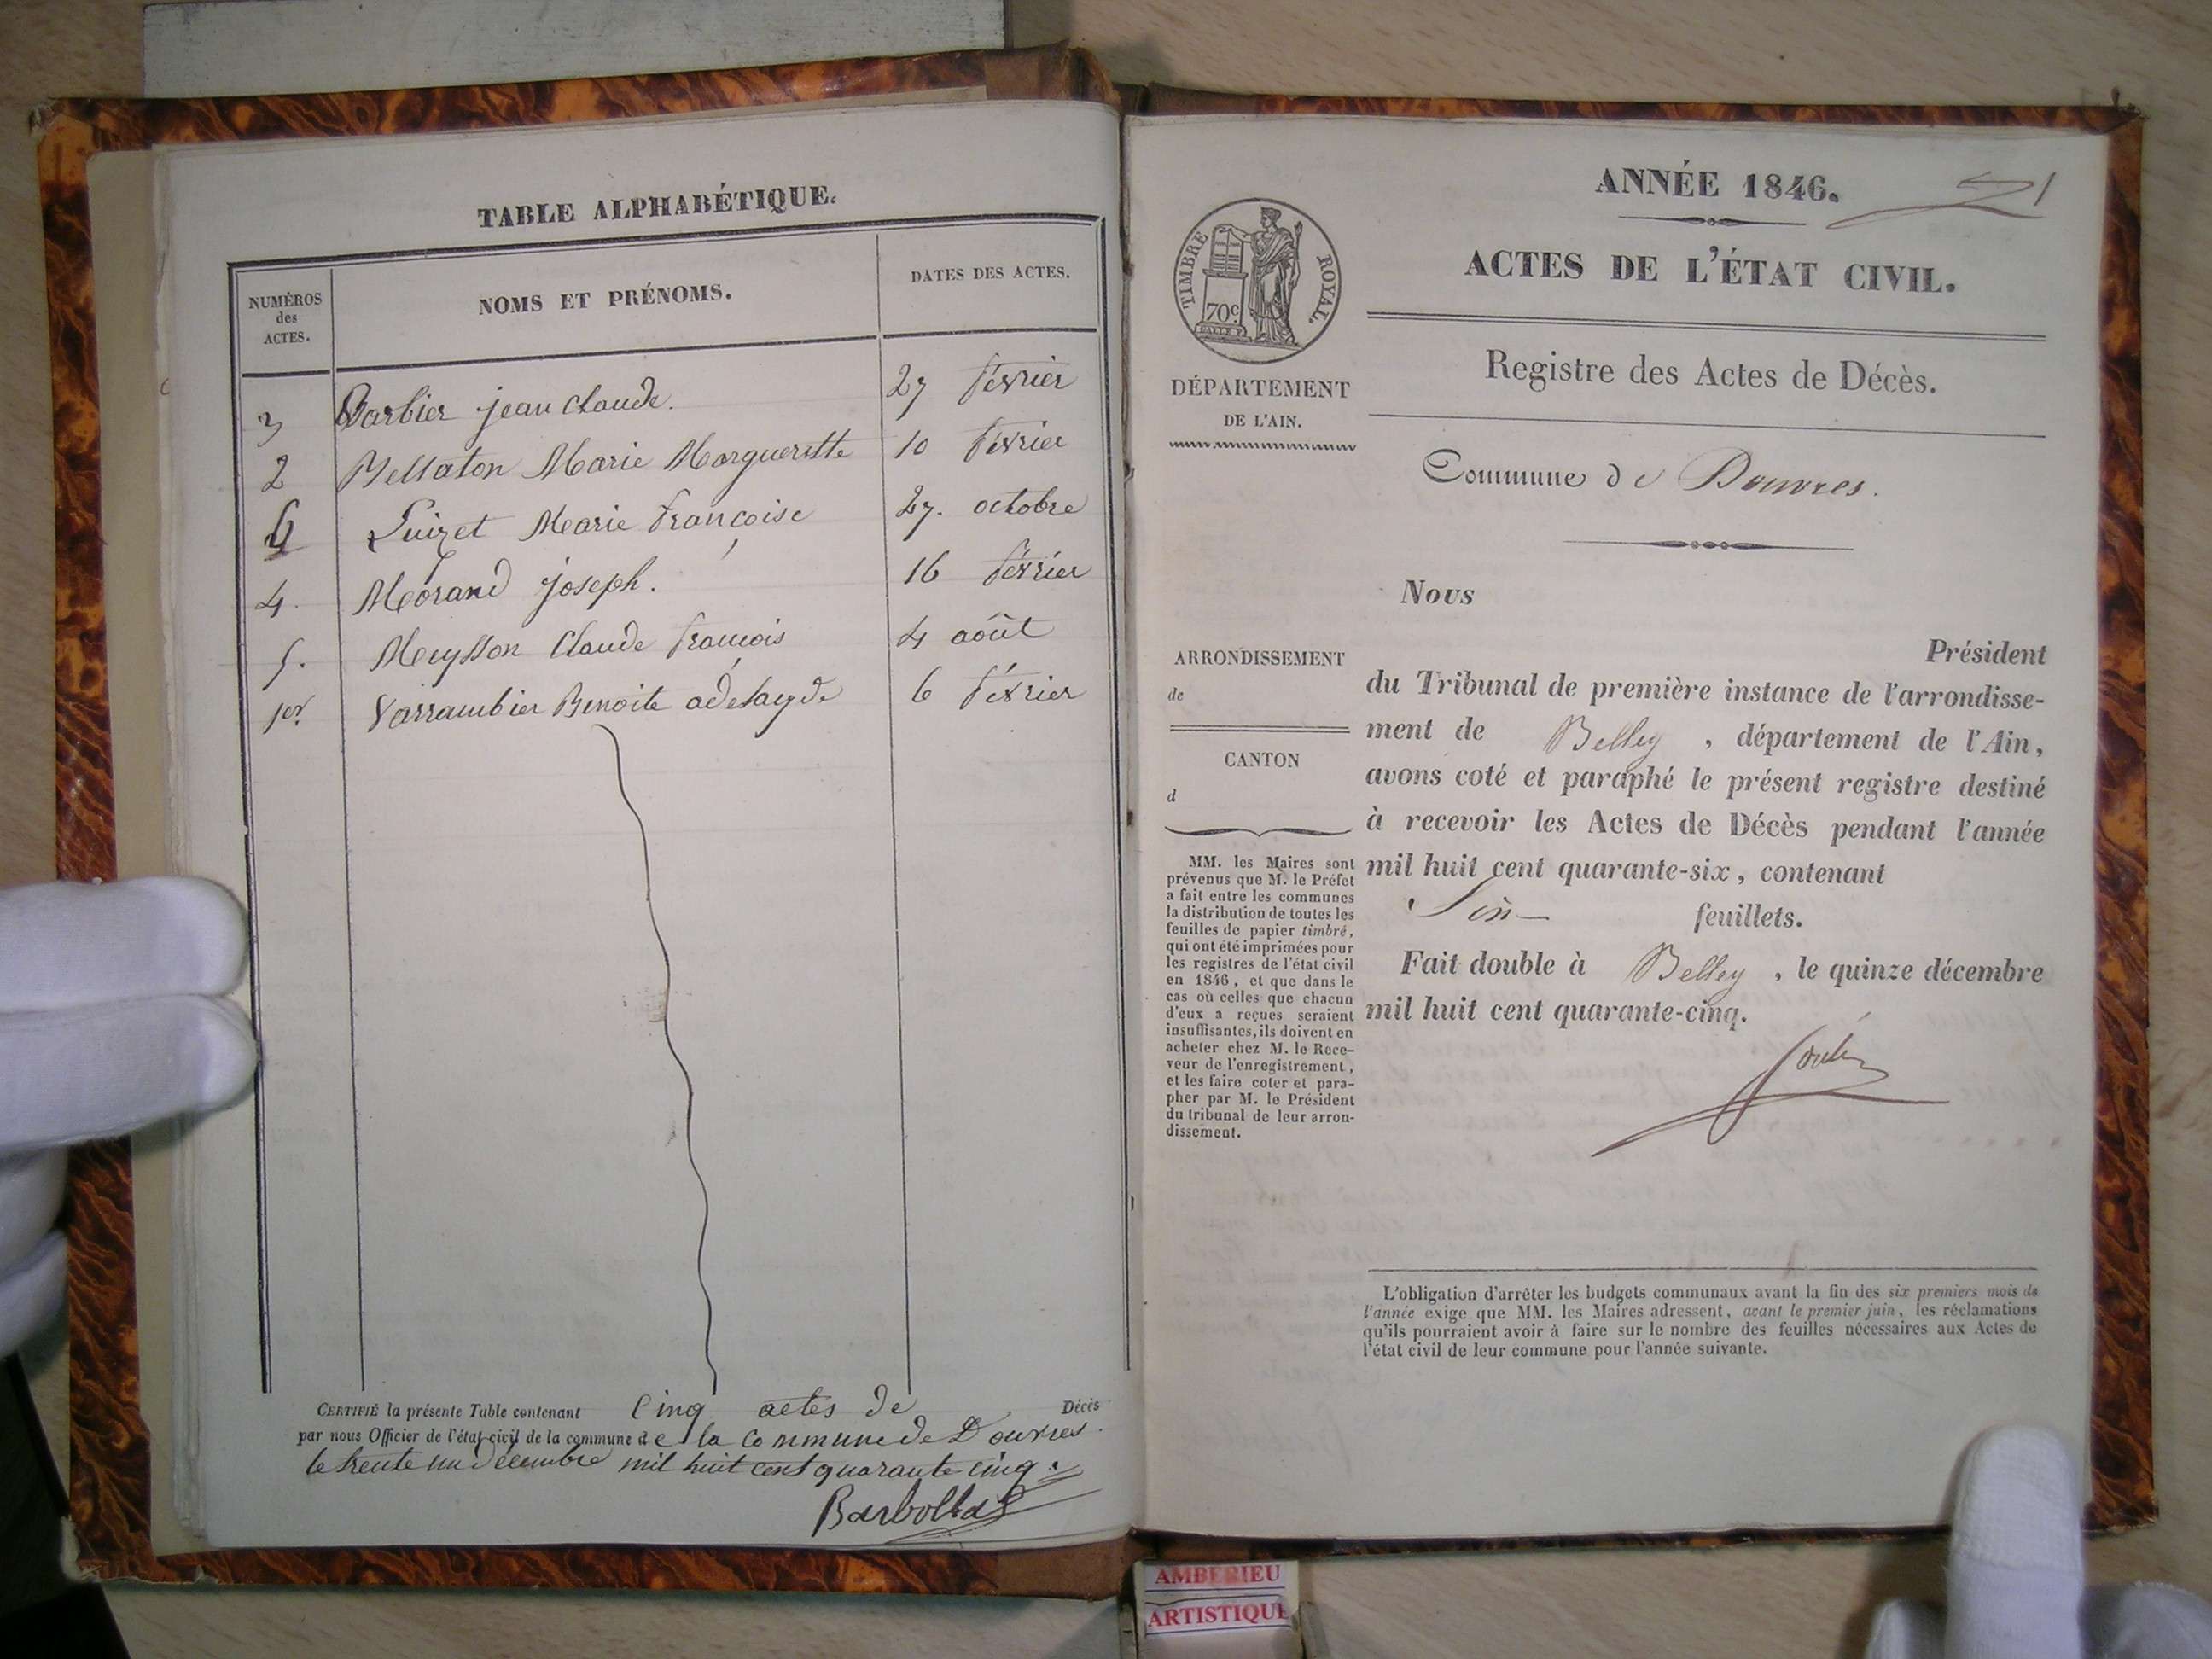 TABLE ALPHABÉTIQUE.
NUMÉROS
des
ACTES.
NOMS ET PRÉNOMS.
DATES DES ACTES.
3 Barbier jean Claude. 27 février
2 Bellaton Marie Margueritte 10 février
6 Luizet Marie françoise 27. octobre
4. Morand joseph. 16 février
5. Meysson Claude francois 4 août
1er. Varrambier Benoite adelayde 6 février
CERTIFIÉ la présente Table contenant Cinq actes de Décès
par nous Officier de l'état-civil de la commune de la Commune de Douvres.
le trente un décembre mil huit cent quarante cinq.
ANNÉE 1846.
TIMBRE ROYAL.
70c.
ACTES DE L'ÉTAT CIVIL.
Registre des Actes de Décès.
DÉPARTEMENT
DE L'AIN.
Commune de Douvres.
Nous
Président
du Tribunal de première instance de l'arrondisse-
ment de Belley, département de l'Ain,
avons coté et paraphé le présent registre destiné
à recevoir les Actes de Décès pendant l'année
mil huit cent quarante-six, contenant
feuillets.
Fait double à Belley, le quinze décembre
mil huit cent quarante-cinq.
ARRONDISSEMENT
de
CANTON
d
MM. les Maires sont
prévenus que M. le Préfet
a fait entre les communes
la distribution de toutes les
feuilles de papier timbré,
qui ont été imprimées pour
les registres de l'état civil
en 1846, et que dans le
cas où celles que chacun
d'eux a reçues seraient
insuffisantes, ils doivent en
acheter chez M. le Rece-
veur de l'enregistrement,
et les faire coter et para-
pher par M. le Président
du tribunal de leur arron-
dissement.
L'obligation d'arrêter les budgets communaux avant la fin des six premiers mois de
l'année exige que MM. les Maires adressent, avant le premier juin, les réclamations
qu'ils pourraient avoir à faire sur le nombre des feuilles nécessaires aux Actes de
l'état civil de leur commune pour l'année suivante.
AMBERIEU
ARTISTIQUE